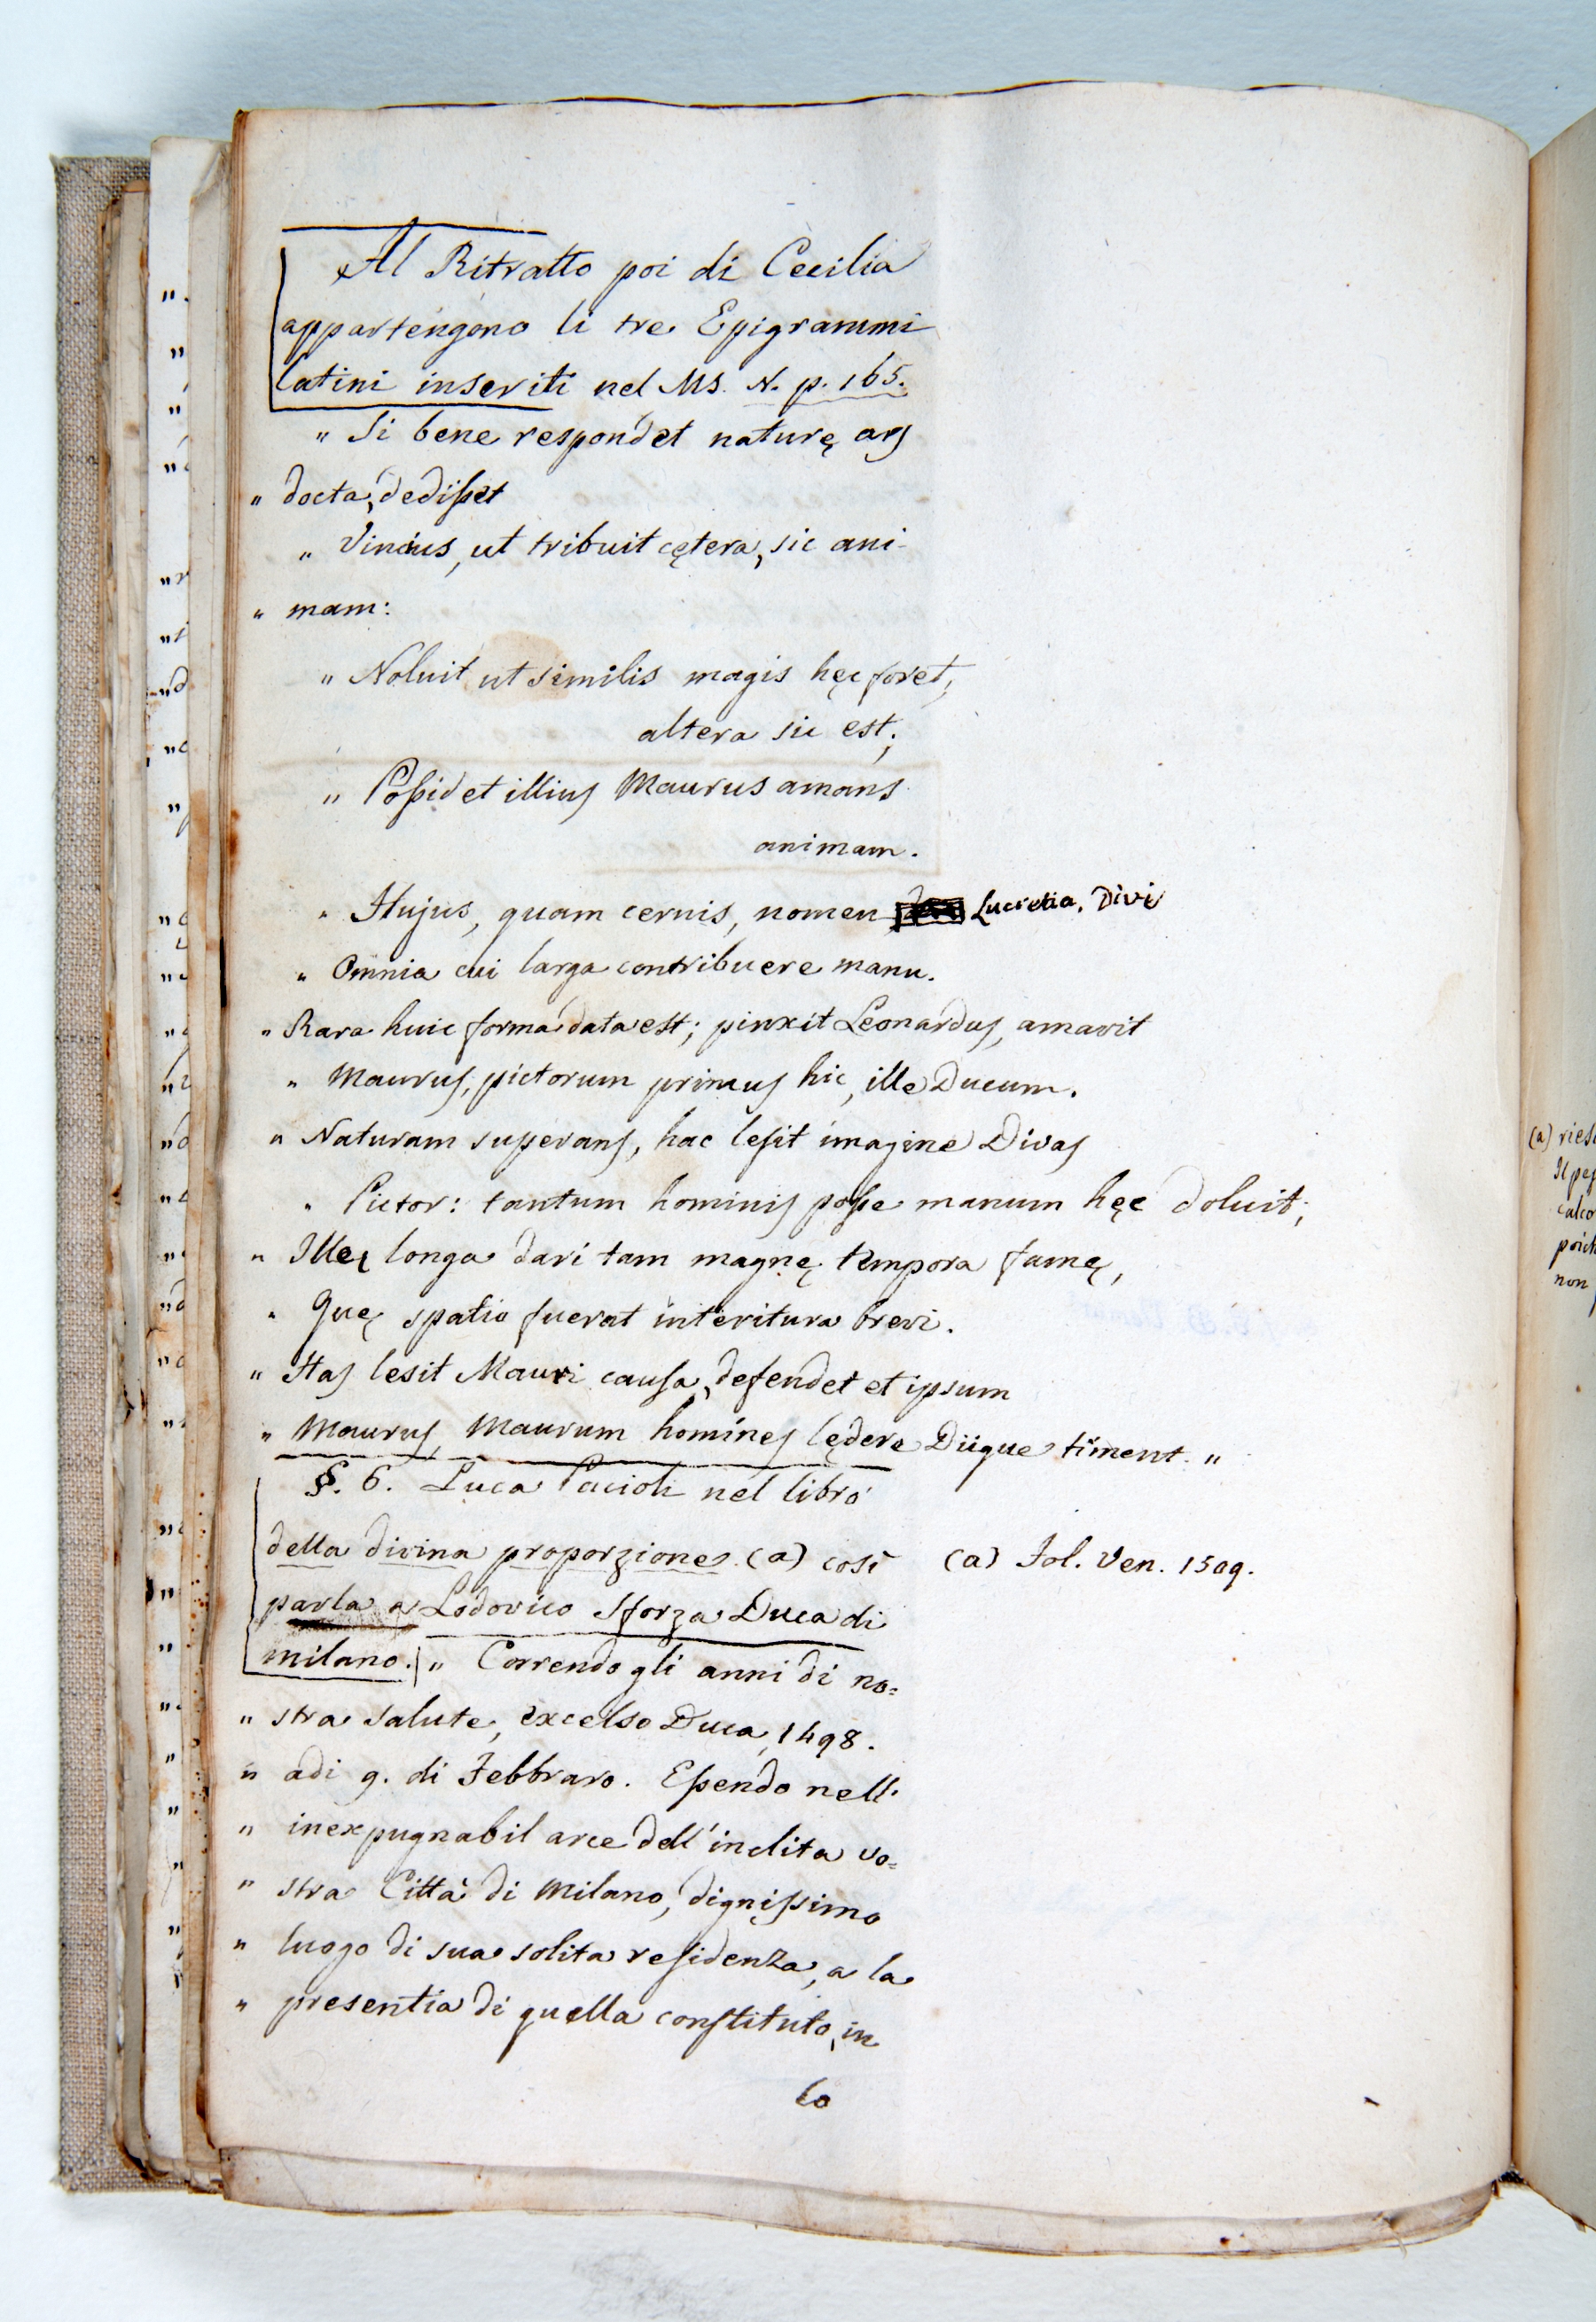 Al Ritratto poi di Cecilia
appartengono li tre Epigrammi
latini inseriti nel MS. N. p. 165.
„ Si bene respondet naturę ars
„ docta, dedisset
„ Vincius, ut tribuit cętera, sic ani-
„ mam:
„ Noluit ut similis magis hęc foret,
altera sic est;
„ Possidet illius Maurus amans
animam.
„ Hujus, quam cernis, nomen Lucretia, Divi
„ Omnia cui larga contribuere manu.
„ Rara huic forma data est; pinxit Leonardus, amavit
„ Maurus, pictorum primus hic, ille Ducum.
„ Naturam superans, hac lesit imagine Divas
„ Pictor: tantum hominis posse manum hęc doluit;
„ Illę longa dari tam magnę tempora famę,
„ Quę spatio fuerat interitura brevi.
„ Has lesit Mauri causa, defendet et ipsum
„ Maurus, Maurum homines lędere Diique timent. „
§. 6. Luca Pacioli nel libro
della divina proporzione (a) così
(a) Fol. Ven. 1509.
parla a Lodovico Sforza Duca di
Milano. „ Correndo gli anni di no=
„ stra salute, excelso Duca, 1498.
„ adi 9. di Febbraro. Essendo nell'
„ inexpugnabil arce dell'inclita vo=
„ stra Città di Milano, dignissimo
„ luogo di sua solita residenza, a la
„ presentia di quella constituto, in
lo
(a)
non